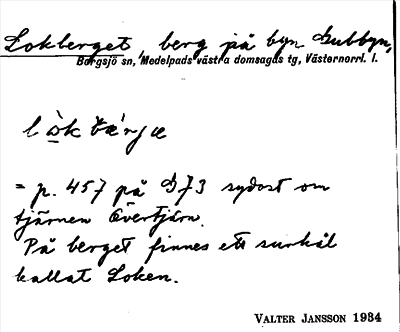 Lokberget, berg på byn Gubbyn,
Borgsjö sn, Medelpads västra domsagas tg, Västernorrl. l.
= p. 457 på G73 sydost om
tjärnen Övertjärn.
På berget finnes ett surhål
kallat Loken.
VALTER JANSSON 1934